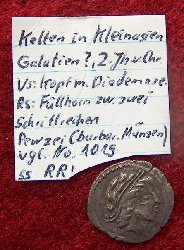 Kelten in Kleinasien
Galatien?, 2. Jh. v. Chr.
Vs: Kopf m. Diadem n. re.
Rs: Füllhorn zw. zwei
Schriftreihen
(barbar. Münzen)
vgl. No. 1019
ss RR!